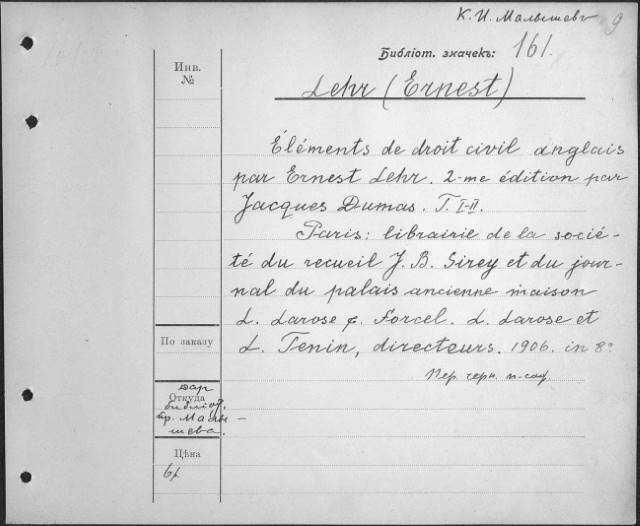 К. И. Малышевъ 9
Библіот. значекъ: 161.
Инв.
№
Lehr (Ernest)
Éléments de droit civil anglais
par Ernest Lehr. 2-me édition par
Jacques Dumas. T. I-II.
Paris: librairie de la socié-
té du recueil J. B. Sirey et du jour-
nal du palais ancienne maison
L. Larose & Forcel. L. Larose et
L. Tenin, directeurs. 1906. in 8º
Пер. черн. п.
По заказу
Откуда
Дар
библіот.
Малы-
шева.
Цѣна